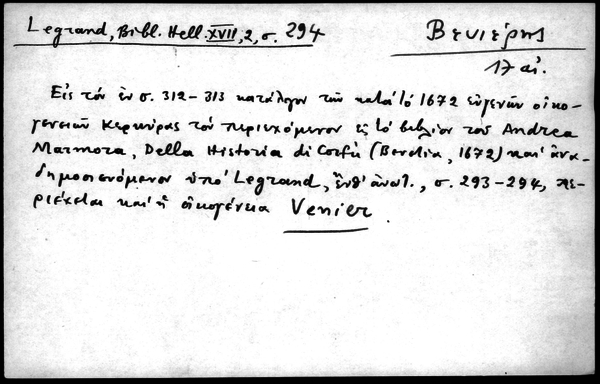 Legrand, Bibl. Hell. XVII, 2, σ. 294
Βενιέρης
17 αἰ.
Εἰς τόν ἐν σ. 312-313 κατάλογον τῶν κατά τό 1672 εὐγενῶν οἰκο-
γενειῶν Κερκύρας τόν περιεχόμενον εἰς τό βιβλίον τοῦ Andrea
Marmora, Della Historia di Corfù (Βενετία, 1672) καί ἀνα-
δημοσιευόμενον ὑπό Legrand, ἔνθ' ἀνωτ., σ. 293-294, πε-
ριέχεται καί ἡ οἰκογένεια Venier.